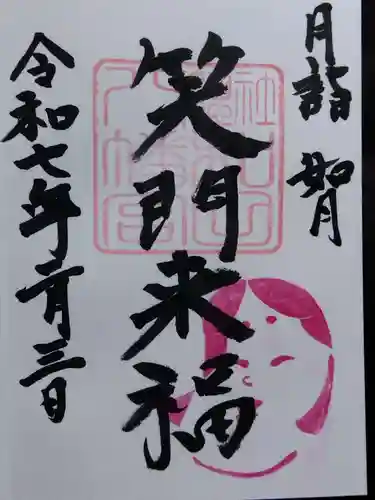 月詣 如月
笑門来福
令和七年二月三日